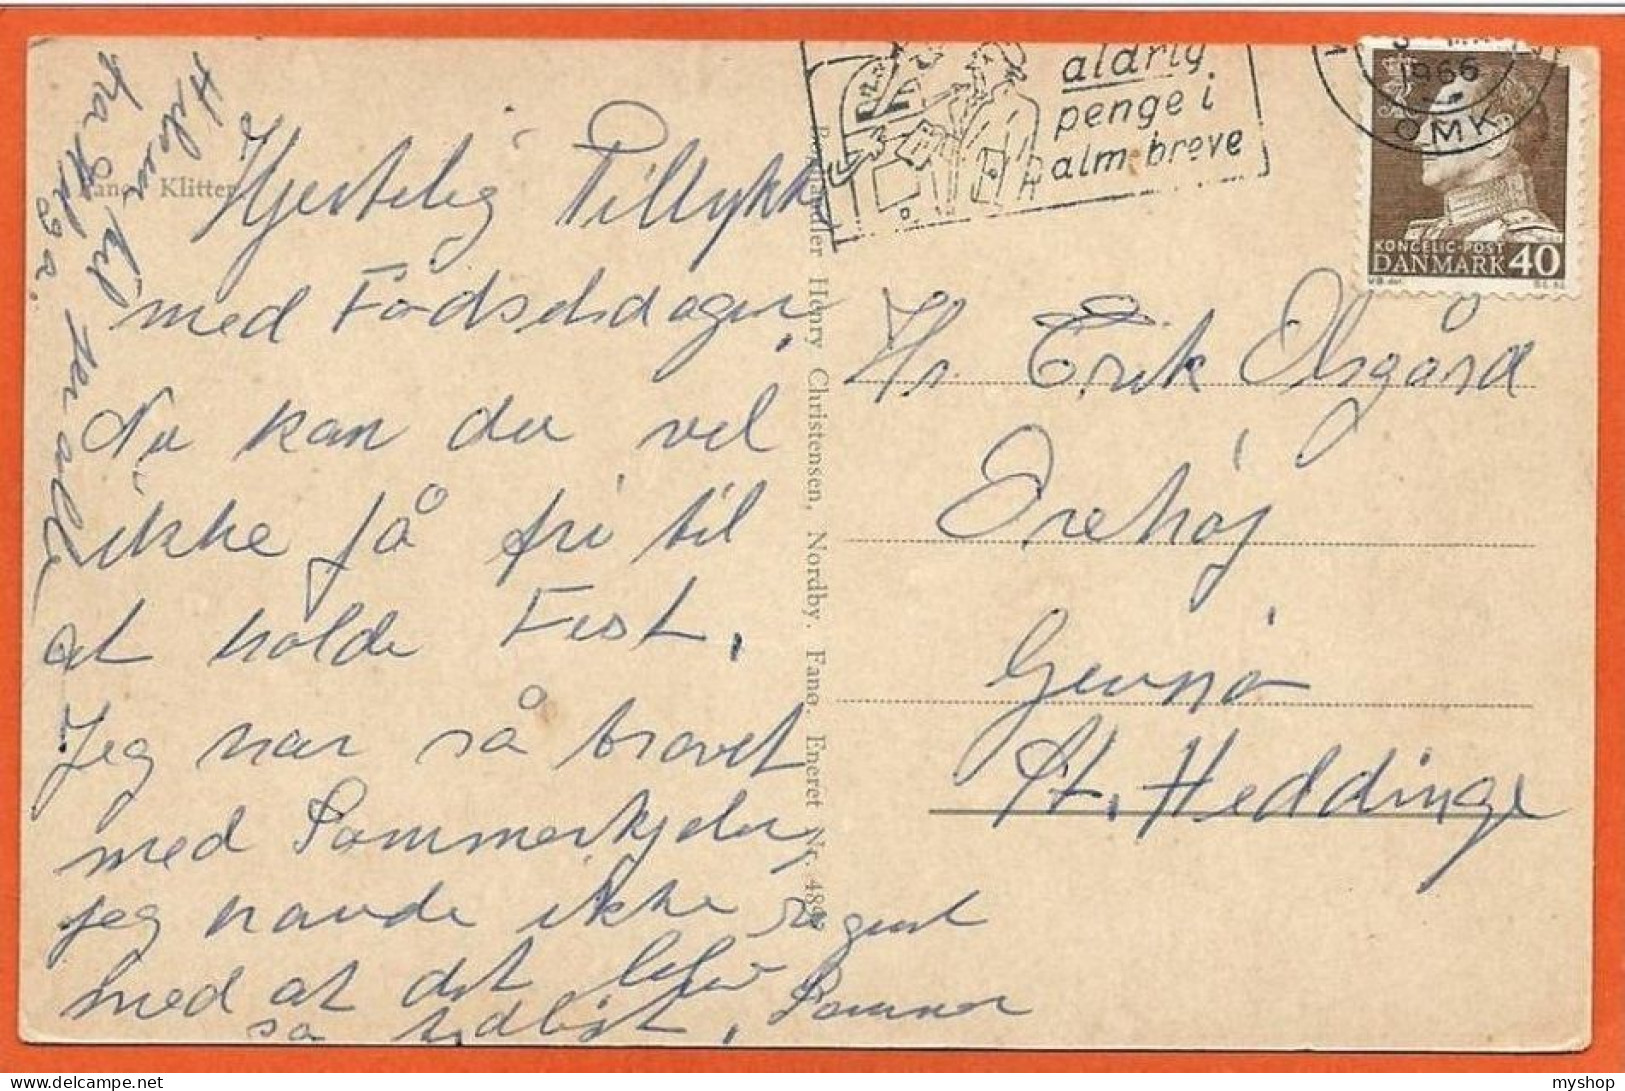 Fanø, Klitter
Hjertelig Tillykke
med Fødselsdagen,
Nu kan du vel
ikke få fri til
at holde Fest,
Jeg har så travlt
med Sommerkjoler,
jeg havde ikke regnet
med at det blev Sommer
så tidligt,
Hilsen til jer alle
fra
Boghandler Henry Christensen, Nordby, Fanø. Eneret Nr.
aldrig
penge i
alm. breve
1966
OMK
KONGELIG·POST
DANMARK 40
Hr. Erik Olsgård
Orehøj
Gevnø
St. Heddinge
myshop